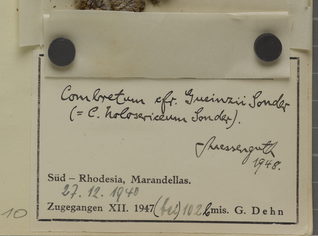 Combretum cfr. Gueinzii Sonder
(= C. holosericeum Sonder).
Suessenguth
1948.
Süd – Rhodesia, Marandellas.
27. 12. 1940
Zugegangen XII. 1947 102 mis. G. Dehn
10